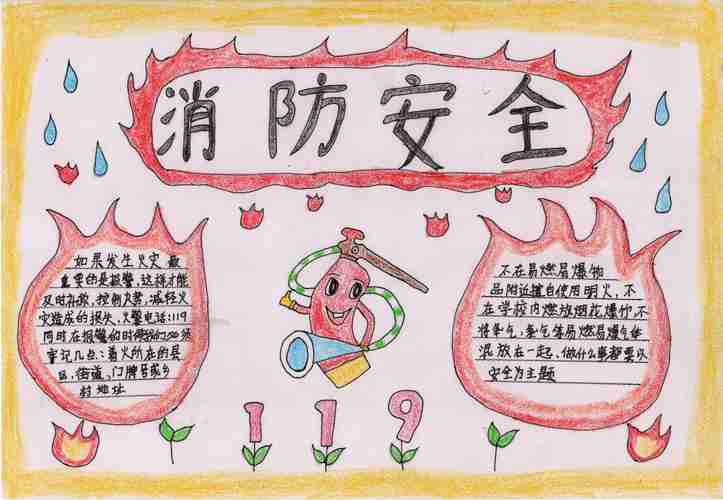 消防安全
如果发生火灾 最
重要的是报警,这样才能
及时扑救,控制火势,减轻火
灾造成的损失,火警电话:119
同时在报警的时候
牢记几点:着火所在的是
区,街道,门牌号或乡
村地址
不在易燃易爆物
品附近擅自使用明火,不
在学校内燃放烟花爆竹,不
将氢气,氧气等易燃易爆气体
混放在一起,做什么事都要以
安全为主题
119